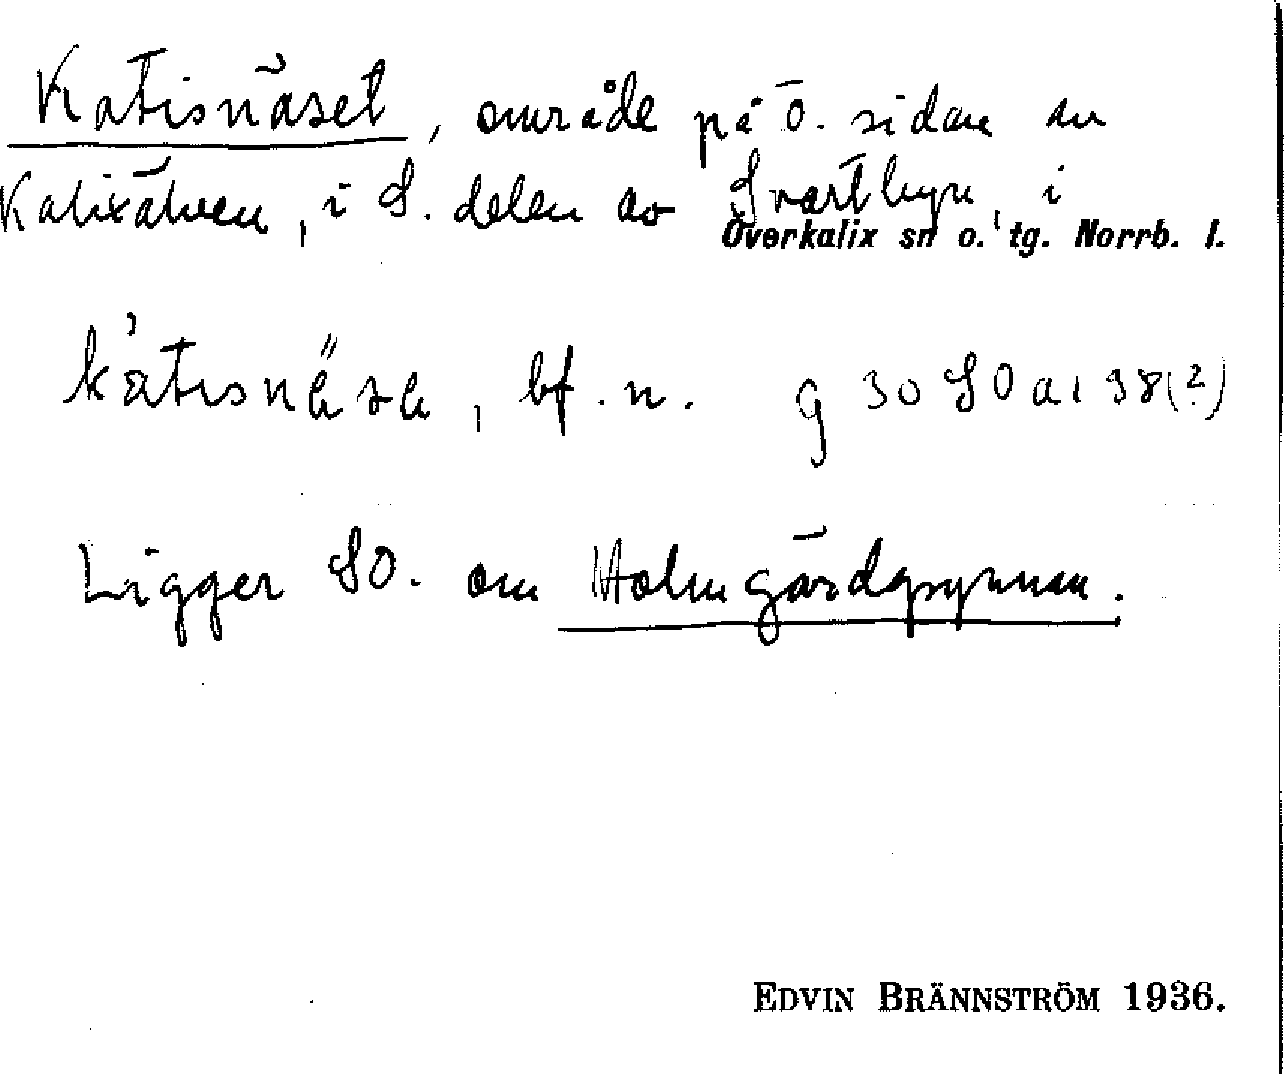 Katisnäset, område på Ö. sidan av
Kalixälven, i S. delen av Svartbyn, i
Överkalix sn o. tg. Norrb. l.
bf. n. g 30 SO a 1 38(?)
Ligger SO. om Holmgårdspynnan.
EDVIN BRÄNNSTRÖM 1936.